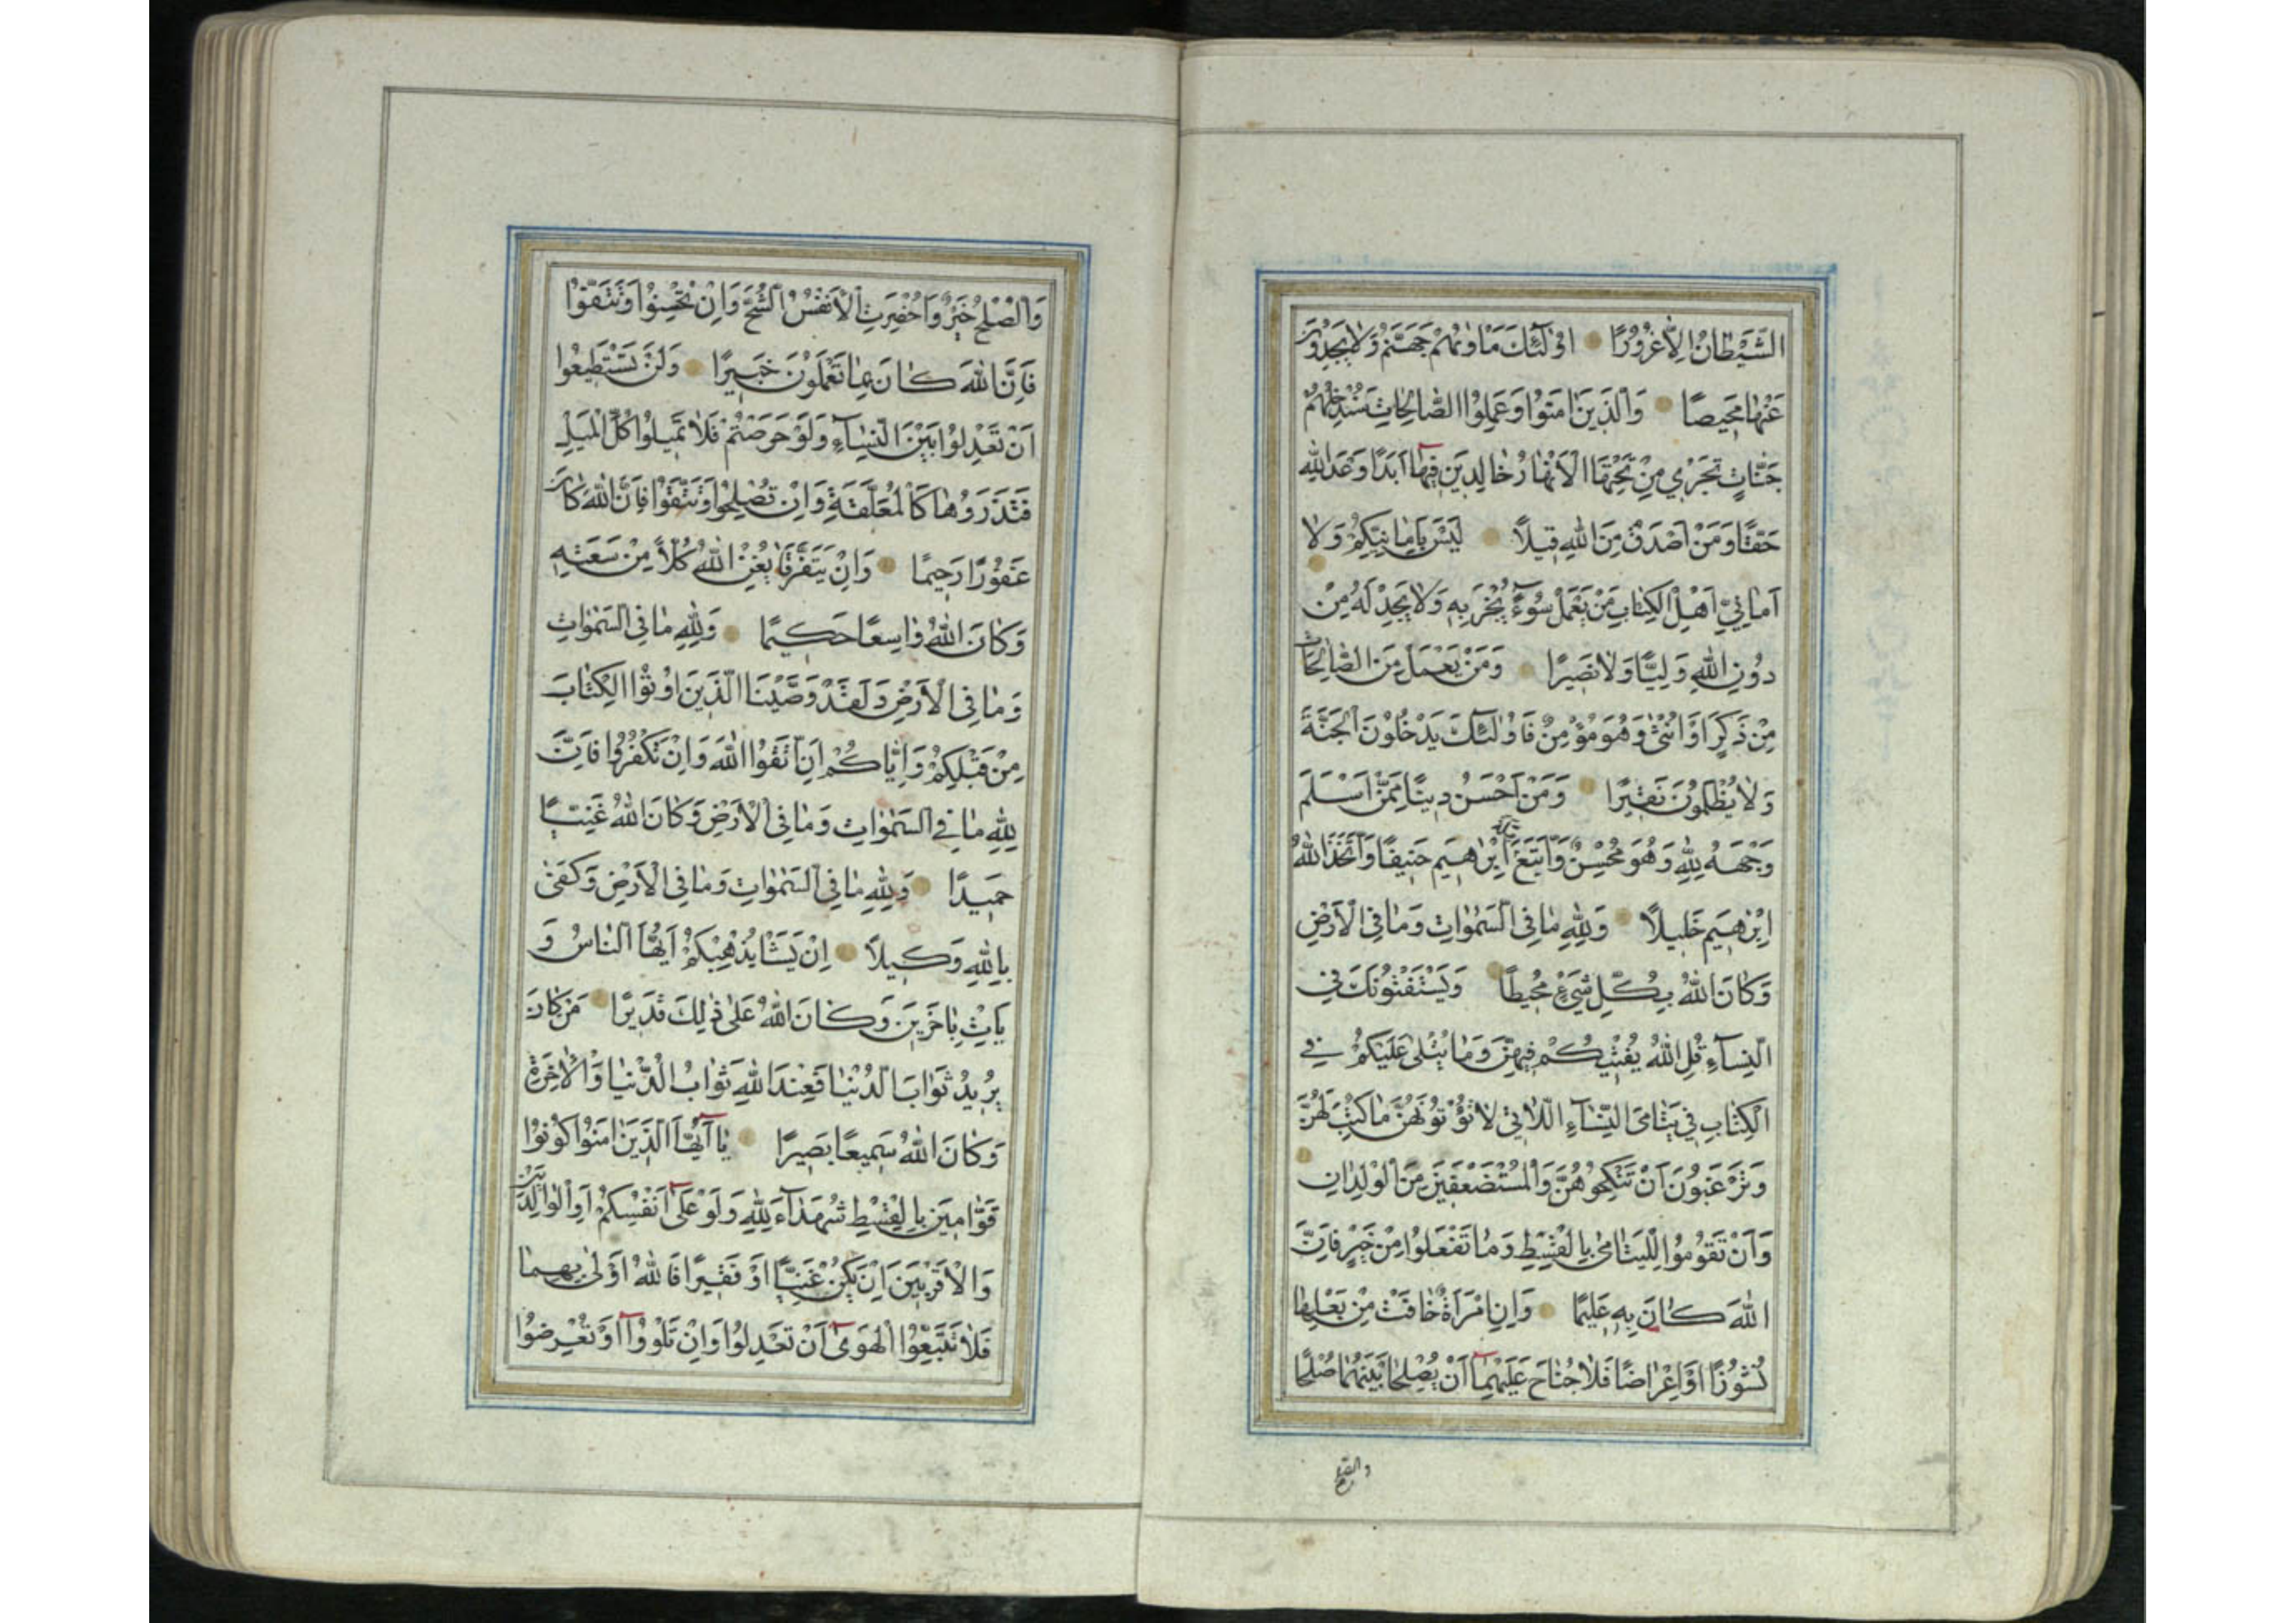 الشَّيْطَانُ اِلَّا غُرُورًا اُولٰٓئِكَ مَأْوٰيهُمْ جَهَنَّمُ وَلَا يَجِدُونَ
عَنْهَا مَحِيصًا وَالَّذِينَ اٰمَنُوا وَعَمِلُوا الصَّالِحَاتِ سَنُدْخِلُهُمْ
جَنَّاتٍ تَجْرِي مِنْ تَحْتِهَا الْاَنْهَارُ خَالِدِينَ فِيهَٓا اَبَدًا وَعْدَ اللهِ
حَقًّا وَمَنْ اَصْدَقُ مِنَ اللهِ قِيلًا لَيْسَ بِاَمَانِيِّكُمْ وَلَا
اَمَانِيِّ اَهْلِ الْكِتَابِ مَنْ يَعْمَلْ سُوٓءًا يُجْزَ بِهِ وَلَا يَجِدْ لَهُ مِنْ
دُونِ اللهِ وَلِيًّا وَلَا نَصِيرًا وَمَنْ يَعْمَلْ مِنَ الصَّالِحَاتِ
مِنْ ذَكَرٍ اَوْ اُنْثٰى وَهُوَ مُؤْمِنٌ فَاُولٰٓئِكَ يَدْخُلُونَ الْجَنَّةَ
وَلَا يُظْلَمُونَ نَقِيرًا وَمَنْ اَحْسَنُ دِينًا مِمَّنْ اَسْلَمَ
وَجْهَهُ لِلّٰهِ وَهُوَ مُحْسِنٌ وَاتَّبَعَ مِلَّةَ اِبْرَاهِيمَ حَنِيفًا وَاتَّخَذَ اللهُ
اِبْرٰهِيمَ خَلِيلًا وَلِلّٰهِ مَا فِي السَّمٰوَاتِ وَمَا فِي الْاَرْضِ
وَكَانَ اللهُ بِكُلِّ شَيْءٍ مُحِيطًا وَيَسْتَفْتُونَكَ فِي
النِّسَآءِ قُلِ اللهُ يُفْتِيكُمْ فِيهِنَّ وَمَا يُتْلٰى عَلَيْكُمْ فِي
الْكِتَابِ فِي يَتَامَى النِّسَآءِ اللَّاتِي لَا تُؤْتُونَهُنَّ مَا كُتِبَ لَهُنَّ
وَتَرْغَبُونَ اَنْ تَنْكِحُوهُنَّ وَالْمُسْتَضْعَفِينَ مِنَ الْوِلْدَانِ
وَاَنْ تَقُومُوا لِلْيَتَامٰى بِالْقِسْطِ وَمَا تَفْعَلُوا مِنْ خَيْرٍ فَاِنَّ
اللهَ كَانَ بِهِ عَلِيمًا وَاِنِ امْرَاَةٌ خَافَتْ مِنْ بَعْلِهَا
نُشُوزًا اَوْ اِعْرَاضًا فَلَا جُنَاحَ عَلَيْهِمَٓا اَنْ يُصْلِحَا بَيْنَهُمَا صُلْحًا
والصلح
وَالصُّلْحُ خَيْرٌ وَاُحْضِرَتِ الْاَنْفُسُ الشُّحَّ وَاِنْ تُحْسِنُوا وَتَتَّقُوا
فَاِنَّ اللهَ كَانَ بِمَا تَعْمَلُونَ خَبِيرًا وَلَنْ تَسْتَطِيعُوا
اَنْ تَعْدِلُوا بَيْنَ النِّسَآءِ وَلَوْ حَرَصْتُمْ فَلَا تَمِيلُوا كُلَّ الْمَيْلِ
فَتَذَرُوهَا كَالْمُعَلَّقَةِ وَاِنْ تُصْلِحُوا وَتَتَّقُوا فَاِنَّ اللهَ كَانَ
غَفُورًا رَحِيمًا وَاِنْ يَتَفَرَّقَا يُغْنِ اللهُ كُلًّا مِنْ سَعَتِهِ
وَكَانَ اللهُ وَاسِعًا حَكِيمًا وَلِلّٰهِ مَا فِي السَّمٰوَاتِ
وَمَا فِي الْاَرْضِ وَلَقَدْ وَصَّيْنَا الَّذِينَ اُوتُوا الْكِتَابَ
مِنْ قَبْلِكُمْ وَاِيَّاكُمْ اَنِ اتَّقُوا اللهَ وَاِنْ تَكْفُرُوا فَاِنَّ
لِلّٰهِ مَا فِي السَّمٰوَاتِ وَمَا فِي الْاَرْضِ وَكَانَ اللهُ غَنِيًّا
حَمِيدًا وَلِلّٰهِ مَا فِي السَّمٰوَاتِ وَمَا فِي الْاَرْضِ وَكَفٰى
بِاللهِ وَكِيلًا اِنْ يَشَأْ يُذْهِبْكُمْ اَيُّهَا النَّاسُ وَ
يَأْتِ بِاٰخَرِينَ وَكَانَ اللهُ عَلٰى ذٰلِكَ قَدِيرًا مَنْ كَانَ
يُرِيدُ ثَوَابَ الدُّنْيَا فَعِنْدَ اللهِ ثَوَابُ الدُّنْيَا وَالْاٰخِرَةِ
وَكَانَ اللهُ سَمِيعًا بَصِيرًا يَٓا اَيُّهَا الَّذِينَ اٰمَنُوا كُونُوا
قَوَّامِينَ بِالْقِسْطِ شُهَدَآءَ لِلّٰهِ وَلَوْ عَلٰٓى اَنْفُسِكُمْ اَوِ الْوَالِدَيْنِ
وَالْاَقْرَبِينَ اِنْ يَكُنْ غَنِيًّا اَوْ فَقِيرًا فَاللهُ اَوْلٰى بِهِمَا
فَلَا تَتَّبِعُوا الْهَوٰٓى اَنْ تَعْدِلُوا وَاِنْ تَلْوُٓوا اَوْ تُعْرِضُوا